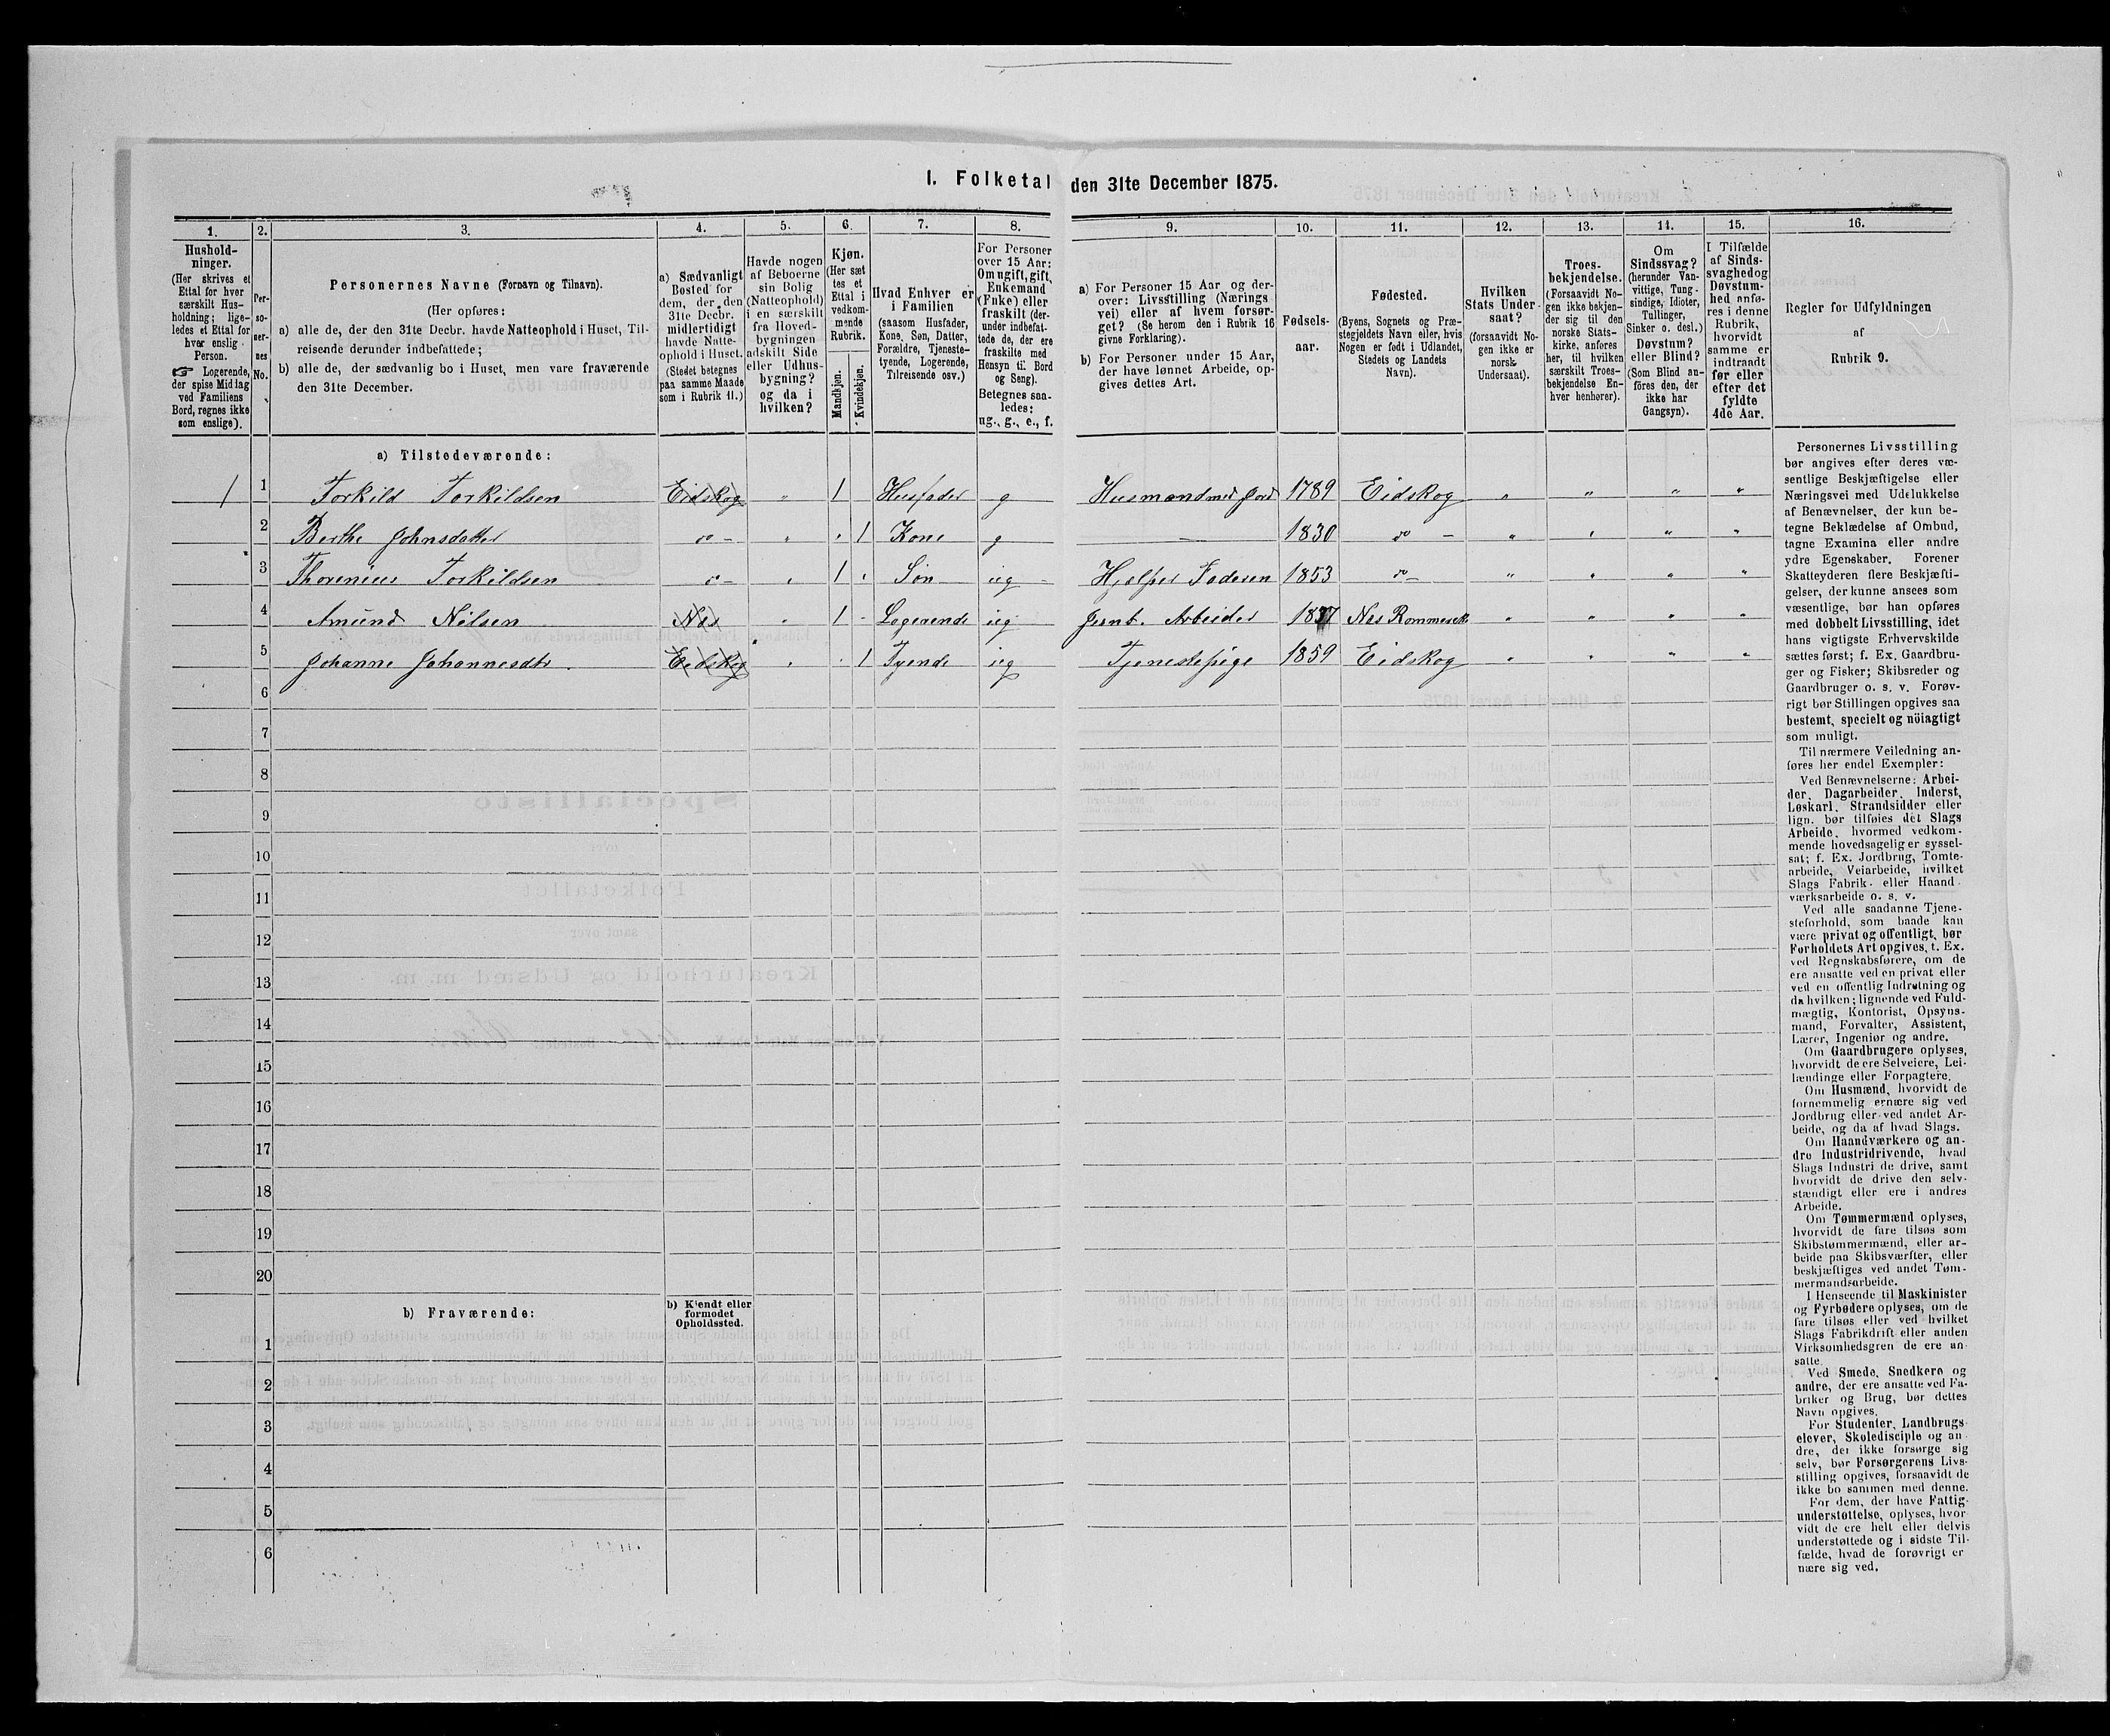 I. Folketal den 31te December 1875.
1. 2. 3. 4. 5. 6. 7. 8. 9. 10. 11. 12. 13. 14. 15. 16.
Hushold-
ninger.
(Her skrives et
Ettal for hver
særskilt Hus-
holdning; lige-
ledes et Ettal for
hver enslig
Person.
☞ Logerende,
der spise Middag
ved Familiens
Bord, regnes ikke
som enslige).
Per-
so-
ner-
nes
No.
Personernes Navne (Fornavn og Tilnavn).
(Her opføres:
a) alle de, der den 31te Decbr. havde Natteophold i Huset, Til-
reisende derunder indbefattede;
b) alle de, der sædvanlig bo i Huset, men vare fraværende
den 31te December.
a) Sædvanligt
Bosted for
dem, der den
31te Decbr.
midlertidigt
havde Natte-
ophold i Huset.
(Stedet betegnes
paa samme Maade
som i Rubrik 11.)
Havde nogen
af Beboerne
sin Bolig
(Natteophold)
i en særskilt
fra Hoved-
bygningen
adskilt Side
eller Udhus-
bygning?
og da i
hvilken?
Kjøn.
(Her sæt
tes et
Ettal i
vedkom-
mende
Rubrik.
Mandkjøn.
Kvindekjøn.
Hvad Enhver er
i Familien
(saasom Husfader,
Kone, Søn, Datter,
Forældre, Tjeneste-
tyende, Logerende,
Tilreisende osv.)
For Personer
over 15 Aar:
Om ugift, gift,
Enkemand
(Enke) eller
fraskilt (der-
under indbefat-
tede de, der ere
fraskilte med
Hensyn til Bord
og Seng).
Betegnes saa-
ledes:
ug., g., e., f.
a) For Personer 15 Aar og der-
over: Livsstilling (Nærings
vei) eller af hvem forsør-
get? (Se herom den i Rubrik 16
givne Forklaring).
b) For Personer under 15 Aar,
der have lønnet Arbeide, op-
gives dettes Art.
Fødsels-
aar.
Fødested.
(Byens, Sognets og Præ-
stegjeldets Navn eller, hvis
Nogen er født i Udlandet,
Stedets og Landets
Navn).
Hvilken
Stats Under-
saat?
(forsaavidt No-
gen ikke er
norsk
Undersaat).
Troes-
bekjendelse.
(Forsaavidt No-
gen ikke bekjen-
der sig til den
norske Stats-
kirke, anføres
her, til hvilken
særskilt Troes-
bekjendelse En-
hver henhører).
Om
Sindssvag?
(herunder Van-
vittige, Tung-
sindige, Idioter,
Tullinger,
Sinker o. desl.)
Døvstum?
eller Blind?
(Som Blind an-
føres den, der
ikke har
Gangsyn).
I Tilfælde
af Sinds-
svaghed og
Døvstum-
hed anfø-
res i denne
Rubrik,
hvorvidt
samme er
indtraadt
før eller
efter det
fyldte
4de Aar.
Regler for Udfyldningen
af
Rubrik 9.
a) Tilstedeværende:
1 1 Torkild Torkildsen Eidskog " 1 Husfader g Husmand med Jord 1789 Eidskog " " " "
2 Berthe Johnsdatter do - " " 1 Kone g — 1830 do - " " " "
3 Thorenius Torkildsen do - " 1 " Søn ug Hjelper Faderen 1853 do - " " " "
4 Amund Nilsen Nes " 1 - Logerende ug Jernb. Arbeider Nes Rommerike " " " "
5 Johanne Johannesdtr. Eidskog " " 1 Tyende ug Tjenestepige 1859 Eidskog " " " "
6
7
8
9
10
11
12
13
14
15
16
17
18
19
20
b) Fraværende:
b) Kjendt eller
formodet
Opholdssted.
1
2
3
4
5
6
Personernes Livsstilling
bør angives efter deres væ-
sentlige Beskjæftigelse eller
Næringsvei med Udelukkelse
af Benævnelser, der kun be-
tegne Beklædelse af Ombud,
tagne Examina eller andre
ydre Egenskaber. Forener
Skatteyderen flere Beskjæfti-
gelser, der kunne ansees som
væsentlige, bør han opføres
med dobbelt Livsstilling, idet
hans vigtigste Erhvervskilde
sættes først; f. Ex. Gaardbru-
ger og Fisker; Skibsreder og
Gaardbruger o. s. v. Forøv-
rigt bør Stillingen opgives saa
bestemt, specielt og nöiagtigt
som muligt.
Til nærmere Veiledning an-
føres her endel Exempler:
Ved Benævnelserne: Arbei-
der, Dagarbeider, Inderst,
Løskarl, Strandsidder eller
lign. bør tilføies det Slags
Arbeide, hvormed vedkom-
mende hovedsagelig er syssel-
sat; f. Ex. Jordbrug, Tomte-
arbeide, Veiarbeide, hvilket
Slags Fabrik- eller Haand-
værksarbeide o. s. v.
Ved alle saadanne Tjene-
steforhold, som baade kan
være privat og offentligt, bør
Forholdets Art opgives, t. Ex.
ved Regnskabsførere, om de
ere ansatte ved en privat eller
ved en offentlig Indretning og
da hvilken; lignende ved Fuld-
mægtig, Kontorist, Opsyns-
mand, Forvalter, Assistent,
Lærer, Ingeniør og andre.
Om Gaardbrugere oplyses,
hvorvidt de ere Selveiere, Lei-
lændinge eller Forpagtere.
Om Husmænd, hvorvidt de
fornemmelig ernære sig ved
Jordbrug eller ved andet Ar-
beide, og da af hvad Slags.
Om Haandværkere og an-
dre Industridrivende, hvad
Slags Industri de drive, samt
hvorvidt de drive den selv-
stændigt eller ere i andres
Arbeide.
Om Tømmermænd oplyses,
hvorvidt de fare tilsøs som
Skibstømmermænd, eller ar-
beide paa Skibsværfter, eller
beskjæftiges ved andet Tøm-
mermandsarbeide.
I Henseende til Maskinister
og Fyrbødere oplyses, om de
fare tilsøs eller ved hvilket
Slags Fabrikdrift eller anden
Virksomhedsgren de ere an-
satte.
Ved Smede, Snedkere og
andre, der ere ansatte ved Fa-
briker og Brug, bør dettes
Navn opgives.
For Studenter, Landbrugs-
elever, Skoledisciple og an-
dre, der ikke forsørge sig
selv, bør Forsørgerens Livs-
stilling opgives, forsaavidt de
ikke bo sammen med denne.
For dem, der have Fattig-
understøttelse, oplyses, hvor-
vidt de ere helt eller delvis
understøttede og i sidste Til-
fælde, hvad de forøvrigt er
nære sig ved.